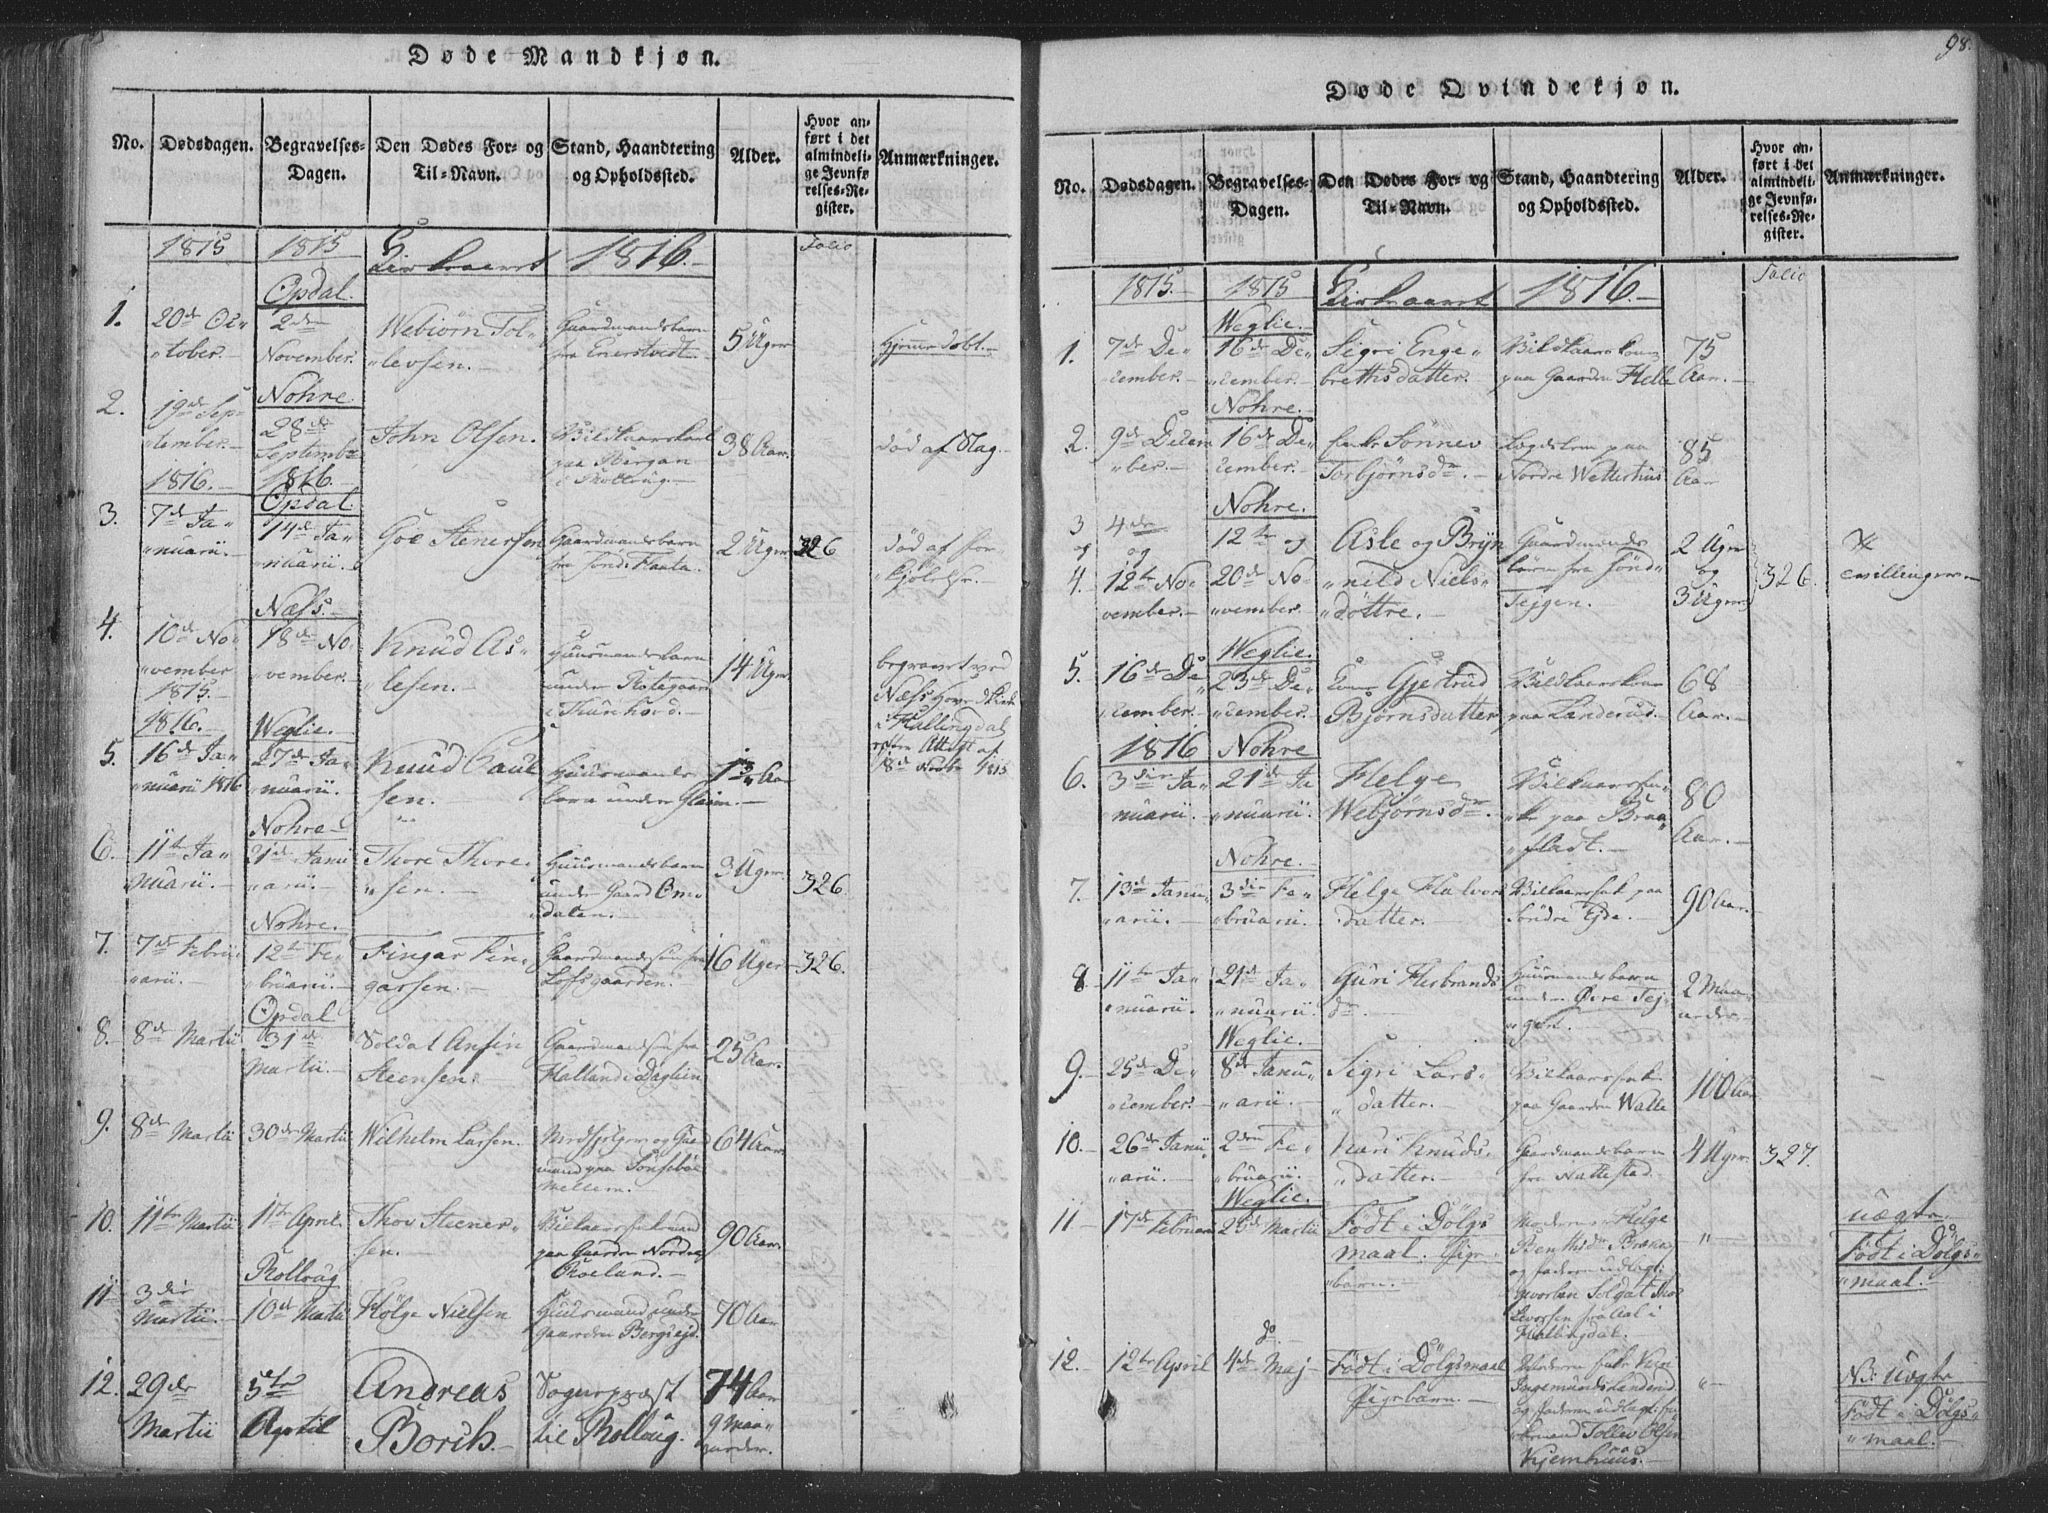 Døde Mandkjøn.
No.
Dødsdagen.
Begravelses-
Dagen.
Den Dødes For- og
Til-Navn.
Stand, Haandtering
og Opholdssted.
Alder.
Hvor an-
ført i det
almindeli-
ge Jevnfø-
relses-Re-
gister.
Anmærkninger.
1815
1815
Kirkeaaret
1816.
Folio
Opdal.
1.
20de Oc-
"tober.
2den
November.
Webiørn Tol-
"levsen.
Gaardmandsbarn
fra Enerstvedt
5 Uger
Hjemmedøbt.
Nohre
2.
19de Sep-
tember.
28de
Septembr
John Olsen.
38 Aar.
død af Slag.
1816.
1816.
Opdal.
3.
7de Ja-
"nuarii.
14de Ja-
nuarii.
Goe Stenersen
Gaardmandsbarn
fra Sönd: Flaata.
2 Uger
326
død af For-
"kjølelse.
Næss.
4.
10de No-
"vember
1815.
18de No-
"vember.
Knud As-
"lesen.
Huusmandsbarn
under
14 Uger
begravet ved
Næss Hoved Kirke
i Hallingdal
efter Attest af
18de Novbr 1815
1816.
Weglie.
5.
16de Ja-
"nuarii 1816
27de Ja-
"nuarii.
Knud Paul-
sen.
Huusmands-
barn under Glaim.
Nohre
6.
11te Ja-
"nuarii.
21de Janu-
"arii.
Thore Thore-
"sen.
Huusmandsbarn
under Gaard Om-
"dalen.
3 Uger
326.
Nohre.
7.
7de Febru-
"arii.
12te Fe-
"bruarii.
Fingar Fin-
gassen.
Gaardmandssøn fra
Lofsgaarden.
16 Uger
326.
Opdal
8.
8de Martii
31de
Martii.
Soldat Ansten
Steensen.
Gaardmandssøn fra
Halland i Daglien
25 Aar.
9.
8de Martii
30de Martii
Wilhelm Larsen.
Medhjelper og Gaard
mand paa Sønsteböe
mellem.
64 Aar.
10.
11te Martii
1te April.
Thov Steener-
sen.
paa Gaarden Nordre
90 Aar.
Rolloug
11
3die
Martii.
10de Martii
Hölge Nielsen
Huusmand under
Gaarden Bergseid.
70 Aar
12.
29de
Martii
5te
April
Andreas
Borch.
Sogneprest
til Rolloug.
74 Aar
9 Maa-
neder.
98.
Døde Qvindekjøn.
No.
Dødsdagen.
Begravelses-
Dagen.
Den Dødes For- og
Til-Navn.
Stand, Haandtering
og Opholdssted.
Alder.
Hvor an-
ført i det
almindeli-
ge Jevnfø-
relses-Re-
gister.
Anmærkninger.
1815.
1815
Kirkeaaret
1816.
Folio
Weglie.
1.
7de De-
"cember.
16de De-
"cember.
Sigri Enge-
brethsdatter.
paa Gaarden Helle
75
Aar.
Nohre.
2.
9de Decem-
"ber.
16de De-
"cember.
Enke Sönnev
Torbjørnsdr.
Lægdslem paa
Nordre Wetterhus
85
Aar
Nohre.
3
og
4.
4de
og
12te No-
vember.
12te og
20de No-
"vember.
Asle og Bryn-
"nild Niels-
"döttre.
Gaardmands-
børn fra Sönd-
Tejgen.
2 Uger
og
3 Uger
326.
tvillinger
Weglie.
5.
16de De-
"cember.
23de De-
"cember.
Gjertrud
Bjørnsdatter
paa Landerud.
68
Aar.
1816
Nohre
6.
3die Ja-
nuarii.
21de Ja-
nuarii.
Helge
Webjørnsdr.
80
Aar.
Nohre.
7.
13de Janu-
"arii.
3die Fe-
"bruarii.
Helge Halvors
datter.
Söndre Ejde.
90 Aar.
8
11te Ja-
"nuarii.
21de Ja-
nuarii.
Guri Herbrands-
dr.
Huusmandsbarn
under Øvre Tej-
"gen.
2 Maa-
neder.
Weglie.
9.
25de De-
"cember.
8de Janu-
"arii.
Sigri Lars-
"datter.
paa Gaarden Walle
100 Aar
10.
26de Janu-
"arii.
2den Fe-
"bruarii.
Kari Knuds-
"datter.
Gaardmandsbarn
fra Nattestad.
4 Uger
327.
Weglie.
11
17de Februarii
23de Martii
Födt i Dölgs
maal. Pige-
"barn.
Moderen Helge
og Faderen udlagt:
Soldat
fra Aal i
Hallingdal.
"
uægte
Födt i Dölgs-
"maal.
do.
12.
12te April
4de Maj
Födt i Dölgsmaal
Pigebarn.
og Faderen udlagt
Tollev Olsen
Kjemhuus.
"
NB: uægte
Födt i Dölgs-
"maal.